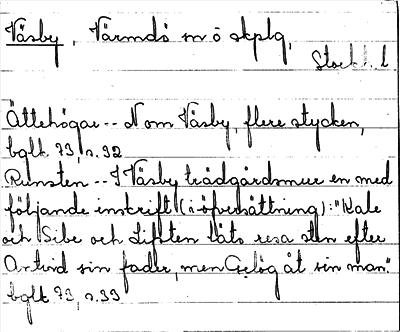 Väsby, Värmdö sn o skplg,
Stockh. l
Ättehögar -- N om Väsby, flere stycken,
bglt 73, n. 32
Runsten -- I Väsby trädgårdsmur en med
följande inskrift (i öfversättning): "Kale
och Sibe och Lifsten läto resa sten efter
Antvid sin fader, men Gelög åt sin man."
bglt 73, n. 33